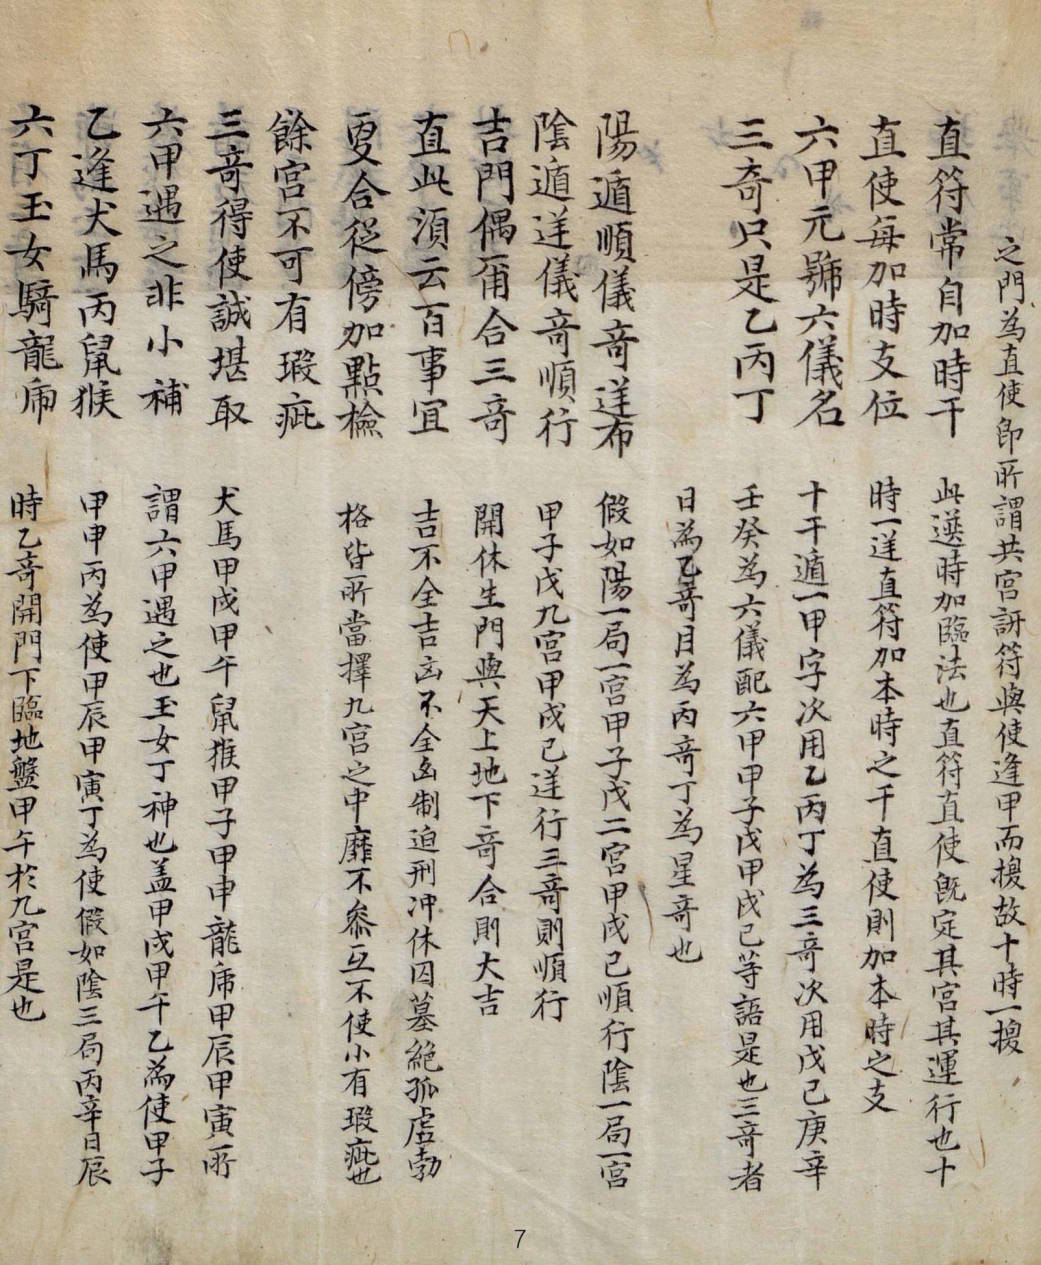 之門為直使即所謂共宮訝符與使逢甲而換故十時一換
直符常自加時干 此選時加臨法也直符直使旣定其宮其運行也十
直使每加時支位 時一逆直符加本時之干直使則加本時之支
六甲元號六儀名 十干遁一甲字次用乙丙丁為三竒次用戊己庚辛
三竒只是乙丙丁 壬癸為六儀配六甲甲子戊甲戌己等語是也三竒者
日為乙竒月為丙竒丁為星竒也
陽遁順儀竒逆布 假如陽一局一宮甲子戊二宮甲戌己順行陰一局一宮
陰遁逆儀竒順行 甲子戊九宮甲戌己逆行三竒則順行
吉門偶爾合三竒 開休生門與天上地下竒合則大吉
直此須云百事宜 吉不全吉凶不全凶制迫刑冲休囚墓絕孤虛勃
更合從傍加點檢 格皆所當擇九宮之中靡不叅互不使小有瑕疵也
餘宮不可有瑕疵
三竒得使誠堪取 犬馬甲戌甲午鼠猴甲子甲申龍乕甲辰甲寅所
六甲遇之非小補 謂六甲遇之也玉女丁神也盖甲戌甲午乙為使甲子
乙逢犬馬丙鼠猴 甲申丙為使甲辰甲寅丁為使假如陰三局丙辛日辰
六丁玉女騎龍乕 時乙竒開門下臨地盤甲午於九宮是也
7